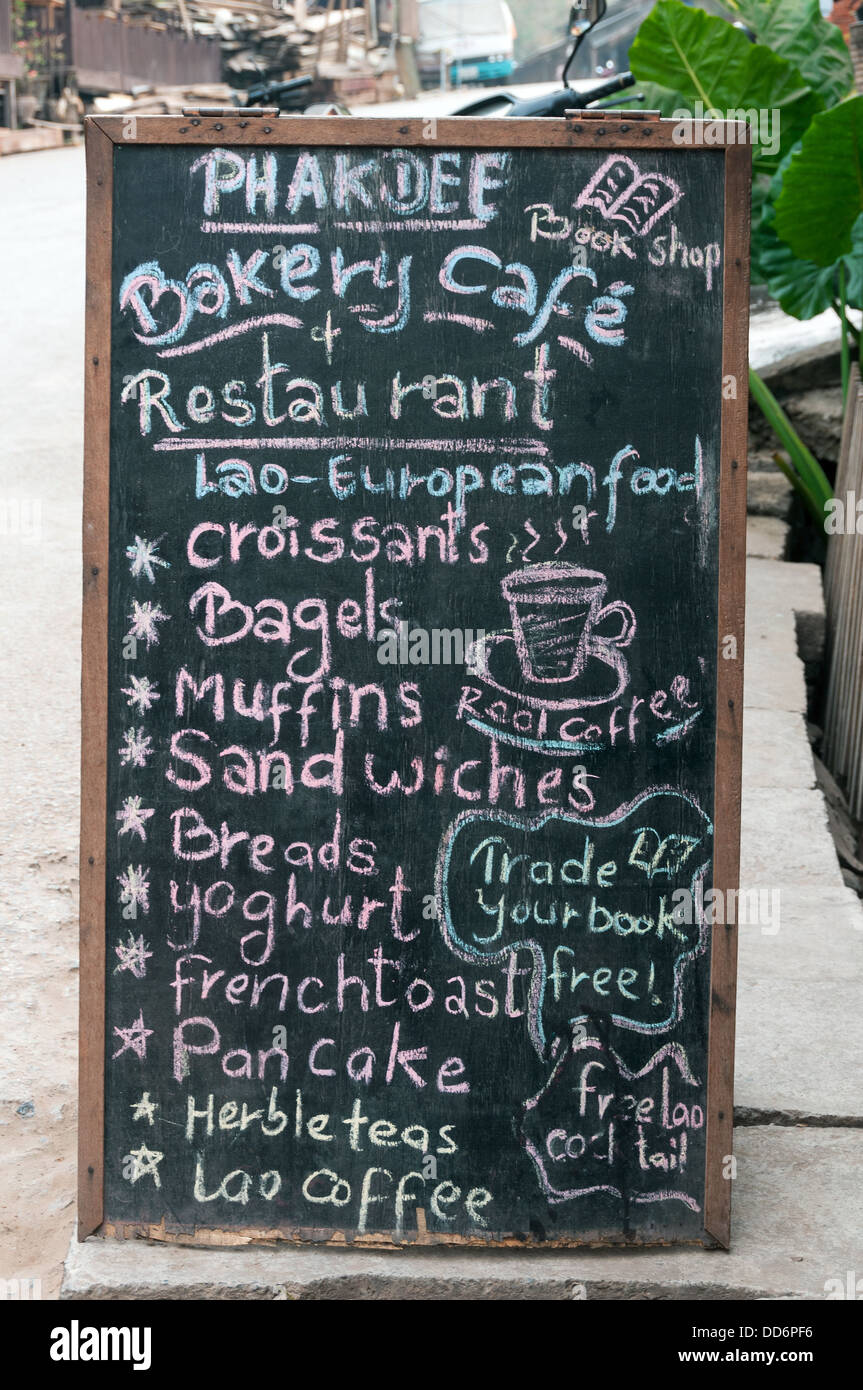 PHAKDEE
Book shop
Bakery Café
+
Restaurant
Lao-European food
croissants
Bagels
Muffins
Real coffee
Sandwiches
Breads
Trade
your book
free!
yoghurt
frenchtoast
Pan Cake
free lao
cocktail
Herble teas
Lao coffee
alamy
Image ID: DD6PF6
www.alamy.com